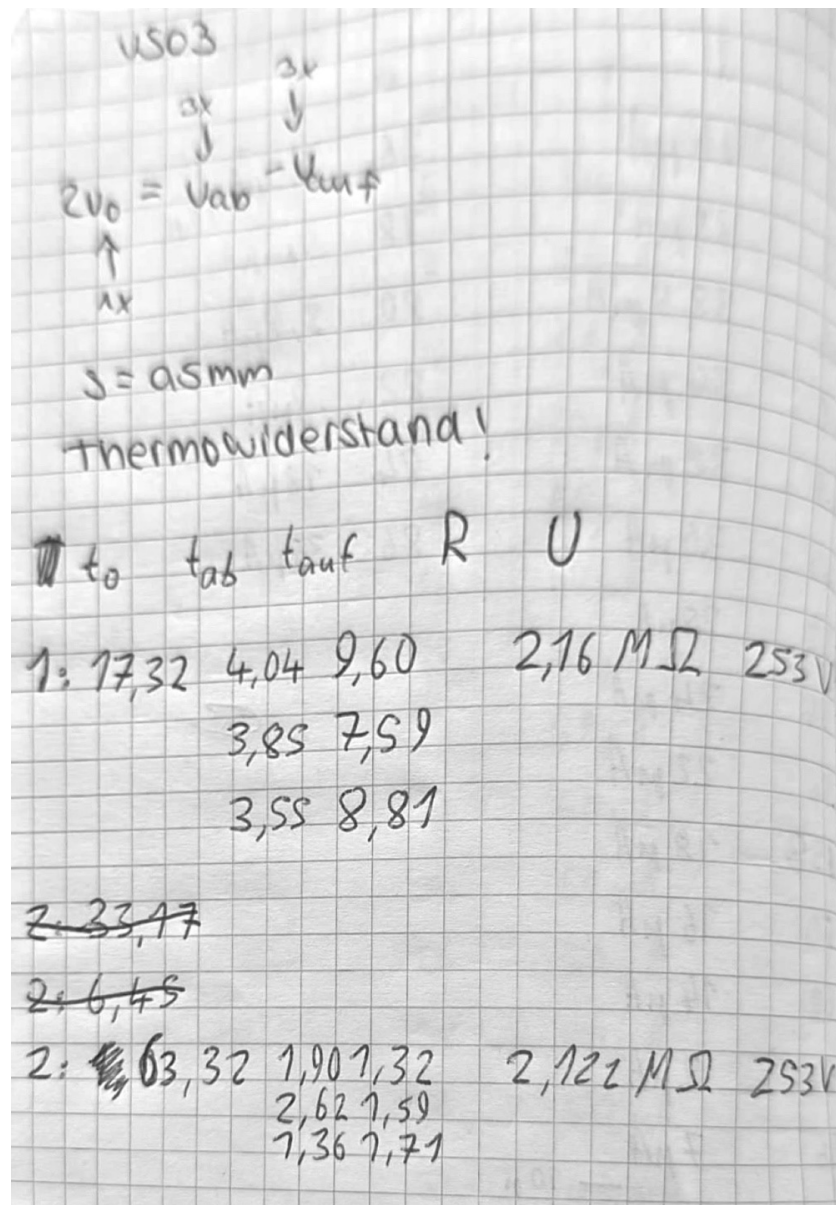 US03
3x 3x
↓ ↓
2v0 = vab - vauf
↑
1x
s = 0,5mm
Thermowiderstand!
t0 tab tauf R U
1: 17,32 4,04 9,60 2,16 MΩ 253V
3,85 7,59
3,55 8,81
2: 33,17
2: 6,45
2: 63,32 1,90 1,32 2,122 MΩ 253V
2,62 1,59
1,36 1,71